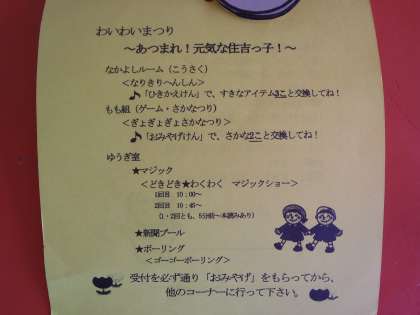 わいわいまつり
～あつまれ！元気な住吉っ子！～
なかよしルーム（こうさく）
＜なりきりへんしん＞
♪「ひきかえけん」で、すきなアイテム3こと交換してね！
もも組（ゲーム・さかなつり）
＜ぎょぎょぎょさかなつり＞
♪「おみやげけん」で、さかな2こと交換してね！
ゆうぎ室
★マジック
＜どきどき★わくわく　マジックショー＞
1回目　10：00～
2回目　10：45～
（1・2回とも、5分前～本読みあり）
★新聞プール
★ボーリング
＜ゴーゴーボーリング＞
受付を必ず通り「おみやげ」をもらってから、
他のコーナーに行って下さい。